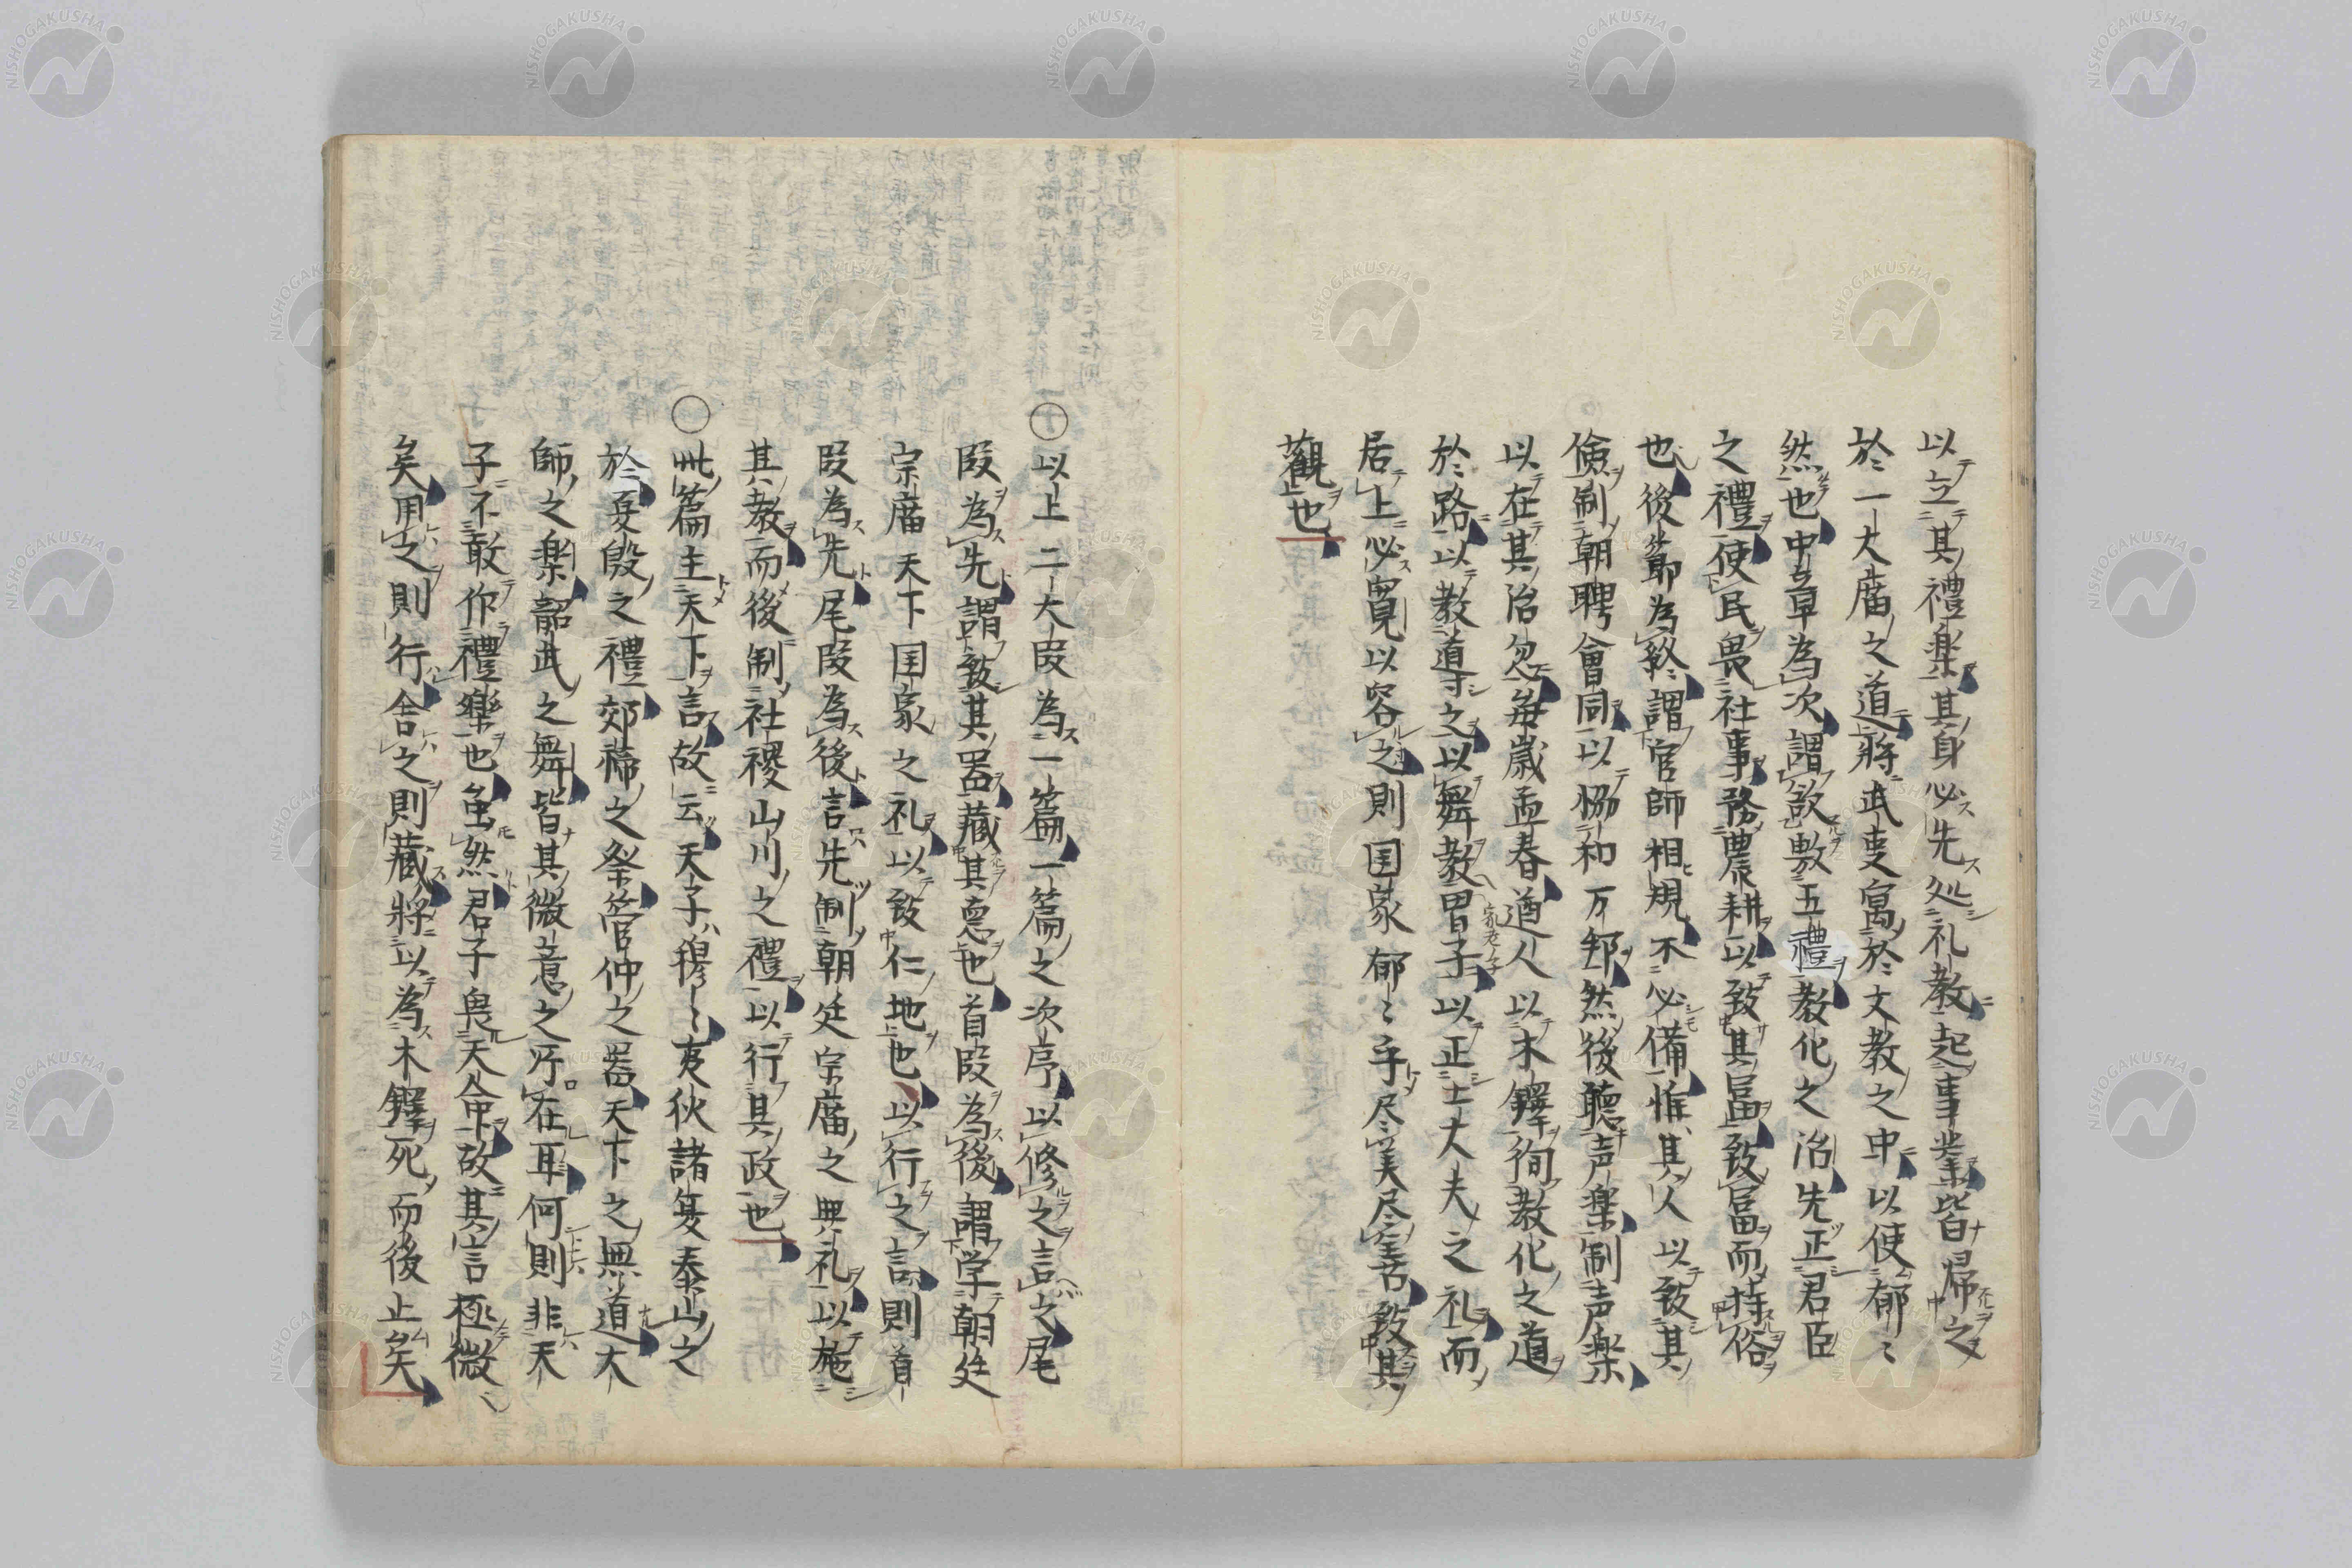 以立其禮楽其身必先処礼教起事業皆帰之
於一大庿之道将武叓寓於文教之中以使郁〻
然也中章為次謂欲敷五禮教化之治先正君臣
之禮使民畏社事務農耕以致其冨致冨而持俗
也後莭為終謂官師相規不必備惟其人以致其
儉制朝聘會同以協和万邦然後聴声楽制声楽
以在其治忽毎歳孟春遒人以木鐸徇教化之道
於路以教導之以舞教冑子以正士大夫之礼而
居上必寛以容之則国家郁〻乎尽美尽善致其
觀也
○以上二大叚為一篇一篇之次序以修之言之尾
叚為先謂致其器藏其悳也首叚為後謂学朝廷
宗庿天下国家之礼以致仁地也以行之言則首
叚為先尾叚為後言先制朝廷宗庿之典礼以施
其教而後制社稷山川之禮以行其政也
○此篇主天下言故云天子穆〻夷狄諸夏泰山之
於夏殷之禮郊禘之祭管仲之器天下之無道大
師之楽韶武之舞皆其微意之所在耳何則非天
子不敢作禮樂也虽然君子畏天命故其言極微
矣用之則行舎之則藏将以為木鐸死而後止矣